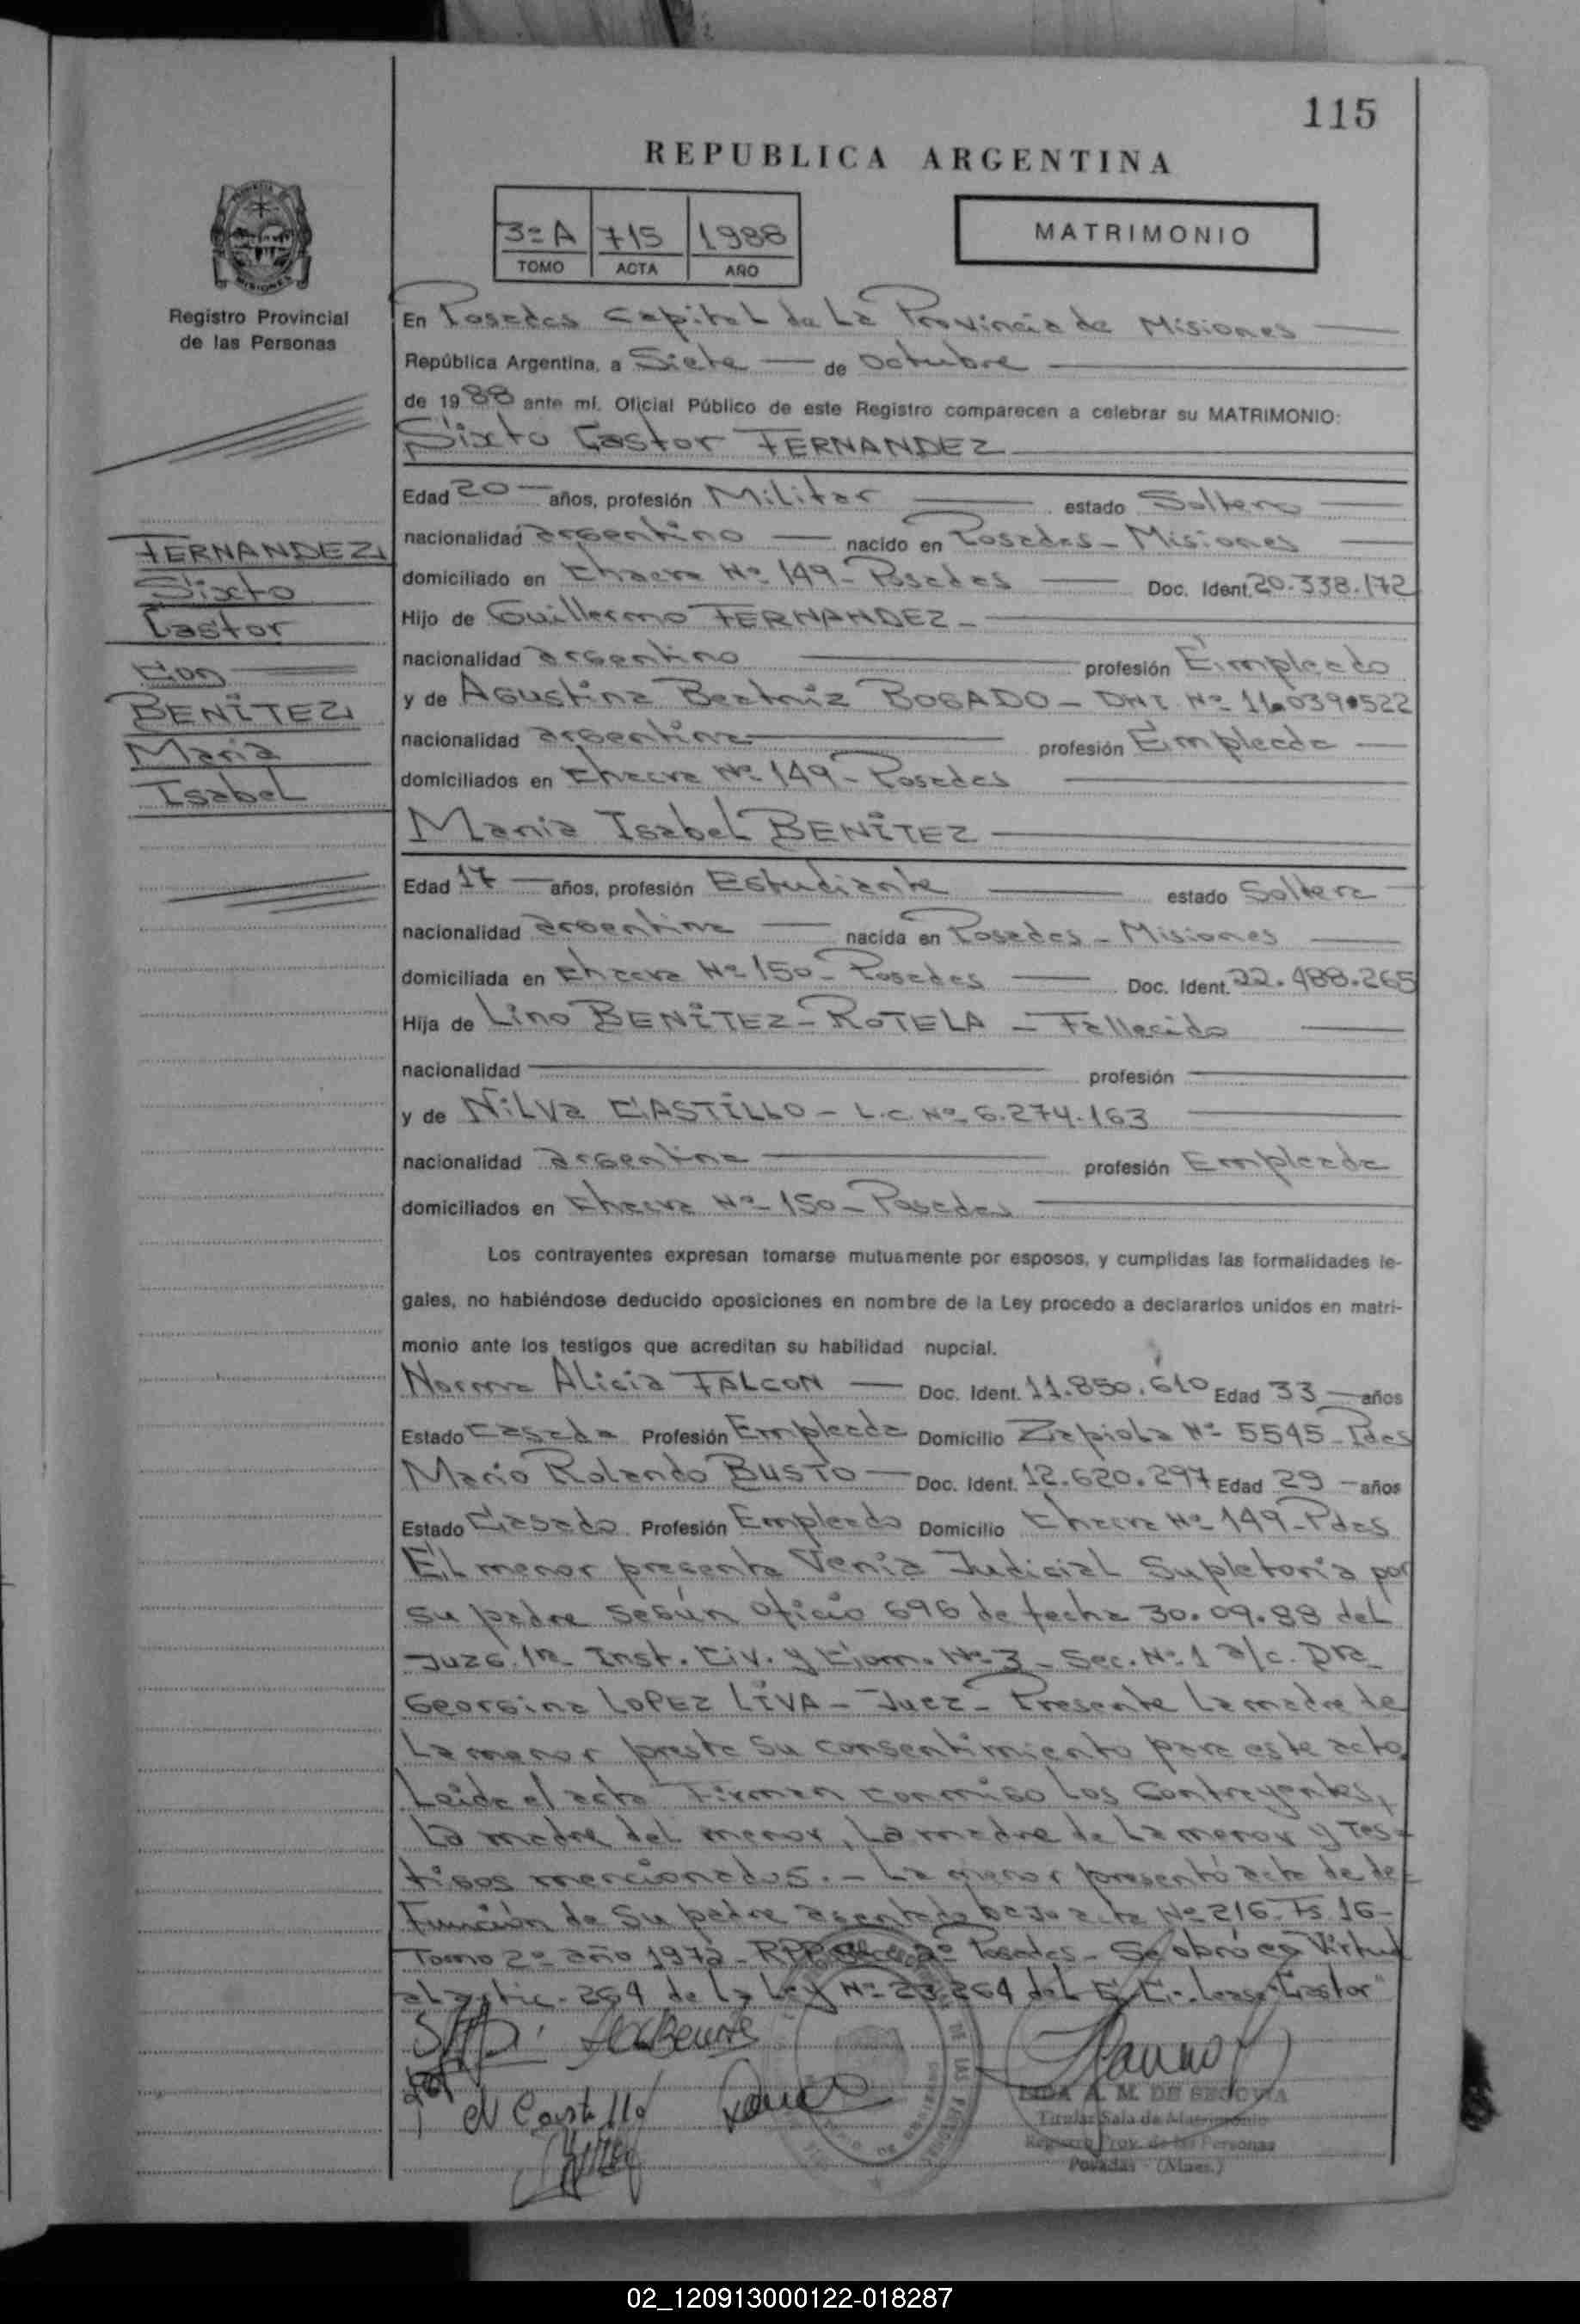 115
REPUBLICA ARGENTINA
3º A 715 1988
TOMO ACTA AÑO
MATRIMONIO
Registro Provincial
de las Personas
FERNANDEZ
Sixto
Castor
Con
BENITEZ
Maria
Isabel
En Posadas Capital de La Provincia de Misiones
República Argentina, a Siete de Octubre
de 1988 ante mí, Oficial Público de este Registro comparecen a celebrar su MATRIMONIO:
Sixto Castor FERNANDEZ
Edad 20 años, profesión Militar estado Soltero
nacionalidad argentino nacido en Posadas - Misiones
domiciliado en Chacra Nº 149 - Posadas Doc. Ident. 20.338.172
Hijo de Guillermo FERNANDEZ -
nacionalidad argentino profesión Empleado
y de Agustina Beatriz BOGADO - DNI Nº 11.039.522
nacionalidad argentina profesión Empleada
domiciliados en Chacra Nº 149 - Posadas
Maria Isabel BENITEZ
Edad 17 años, profesión Estudiante estado Soltera
nacionalidad argentina nacida en Posadas - Misiones
domiciliada en Chacra Nº 150 - Posadas Doc. Ident. 22.488.265
Hija de Lino BENITEZ - ROTELA - Fallecido
nacionalidad profesión
y de NILVA CASTILLO - L.C. Nº 6.274.163
nacionalidad argentina profesión Empleada
domiciliados en Chacra Nº 150 - Posadas
Los contrayentes expresan tomarse mutuamente por esposos, y cumplidas las formalidades le-
gales, no habiéndose deducido oposiciones en nombre de la Ley procedo a declararlos unidos en matri-
monio ante los testigos que acreditan su habilidad nupcial.
Norma Alicia FALCON Doc. Ident. 11.850.610 Edad 33 años
Estado Casada Profesión Empleada Domicilio Zapiola Nº 5545 - Pdas
Mario Rolando BUSTO Doc. Ident. 12.620.297 Edad 29 años
Estado Casado Profesión Empleado Domicilio Chacra Nº 149 - Pdas
El menor presenta Venia Judicial Supletoria por
su padre según oficio 696 de fecha 30.09.88 del
Juzg. 1ra Inst. Civ. y Com. Nº 3 - Sec. Nº 1 a/c. Dra
Georgina LOPEZ LIVA - Juez - Presente La madre de
La menor presta su consentimiento para este acto.
Leida el acta Firman conmigo Los Contrayentes,
La madre del menor, La madre de La menor y Tes-
tigos mencionados. - La menor presentó acta de de-
función de Su padre asentada bajo acta Nº 216 - Fs 16 -
Tomo 2º año 1972 - Posadas - Se obró en Virtud
al artic. 264 de la Ley Nº 23.264 del C. C. - Lease "Castor"
N Castillo
LIDA A. M. DE SEGOVIA
Titular Sala de Matrimonio
Registro Prov. de las Personas
Posadas (Mnes.)
02_120913000122-018287